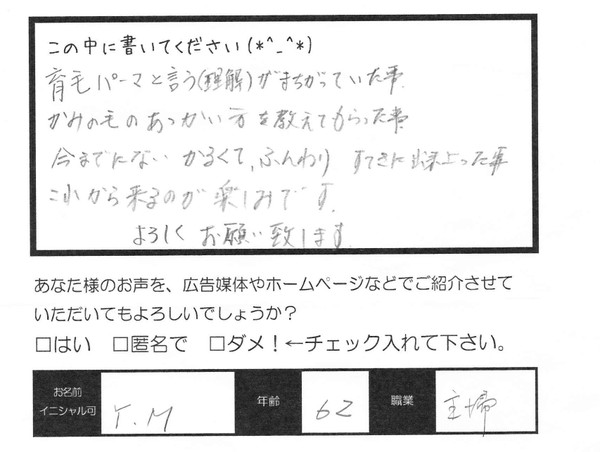 この中に書いてください(*^_^*)
育毛パーマと言う(理解)がまちがっていた事.
かみの毛のあつかい方を教えてもらった事
今までにない かるくて、ふんわり すてきに出来上った事
これから来るのが楽しみです.
よろしく お願い致します.
あなた様のお声を、広告媒体やホームページなどでご紹介させて
いただいてもよろしいでしょうか？
□はい □匿名で □ダメ！←チェック入れて下さい。
お名前 年齢 職業
イニシャル可 Y.M 62 主婦